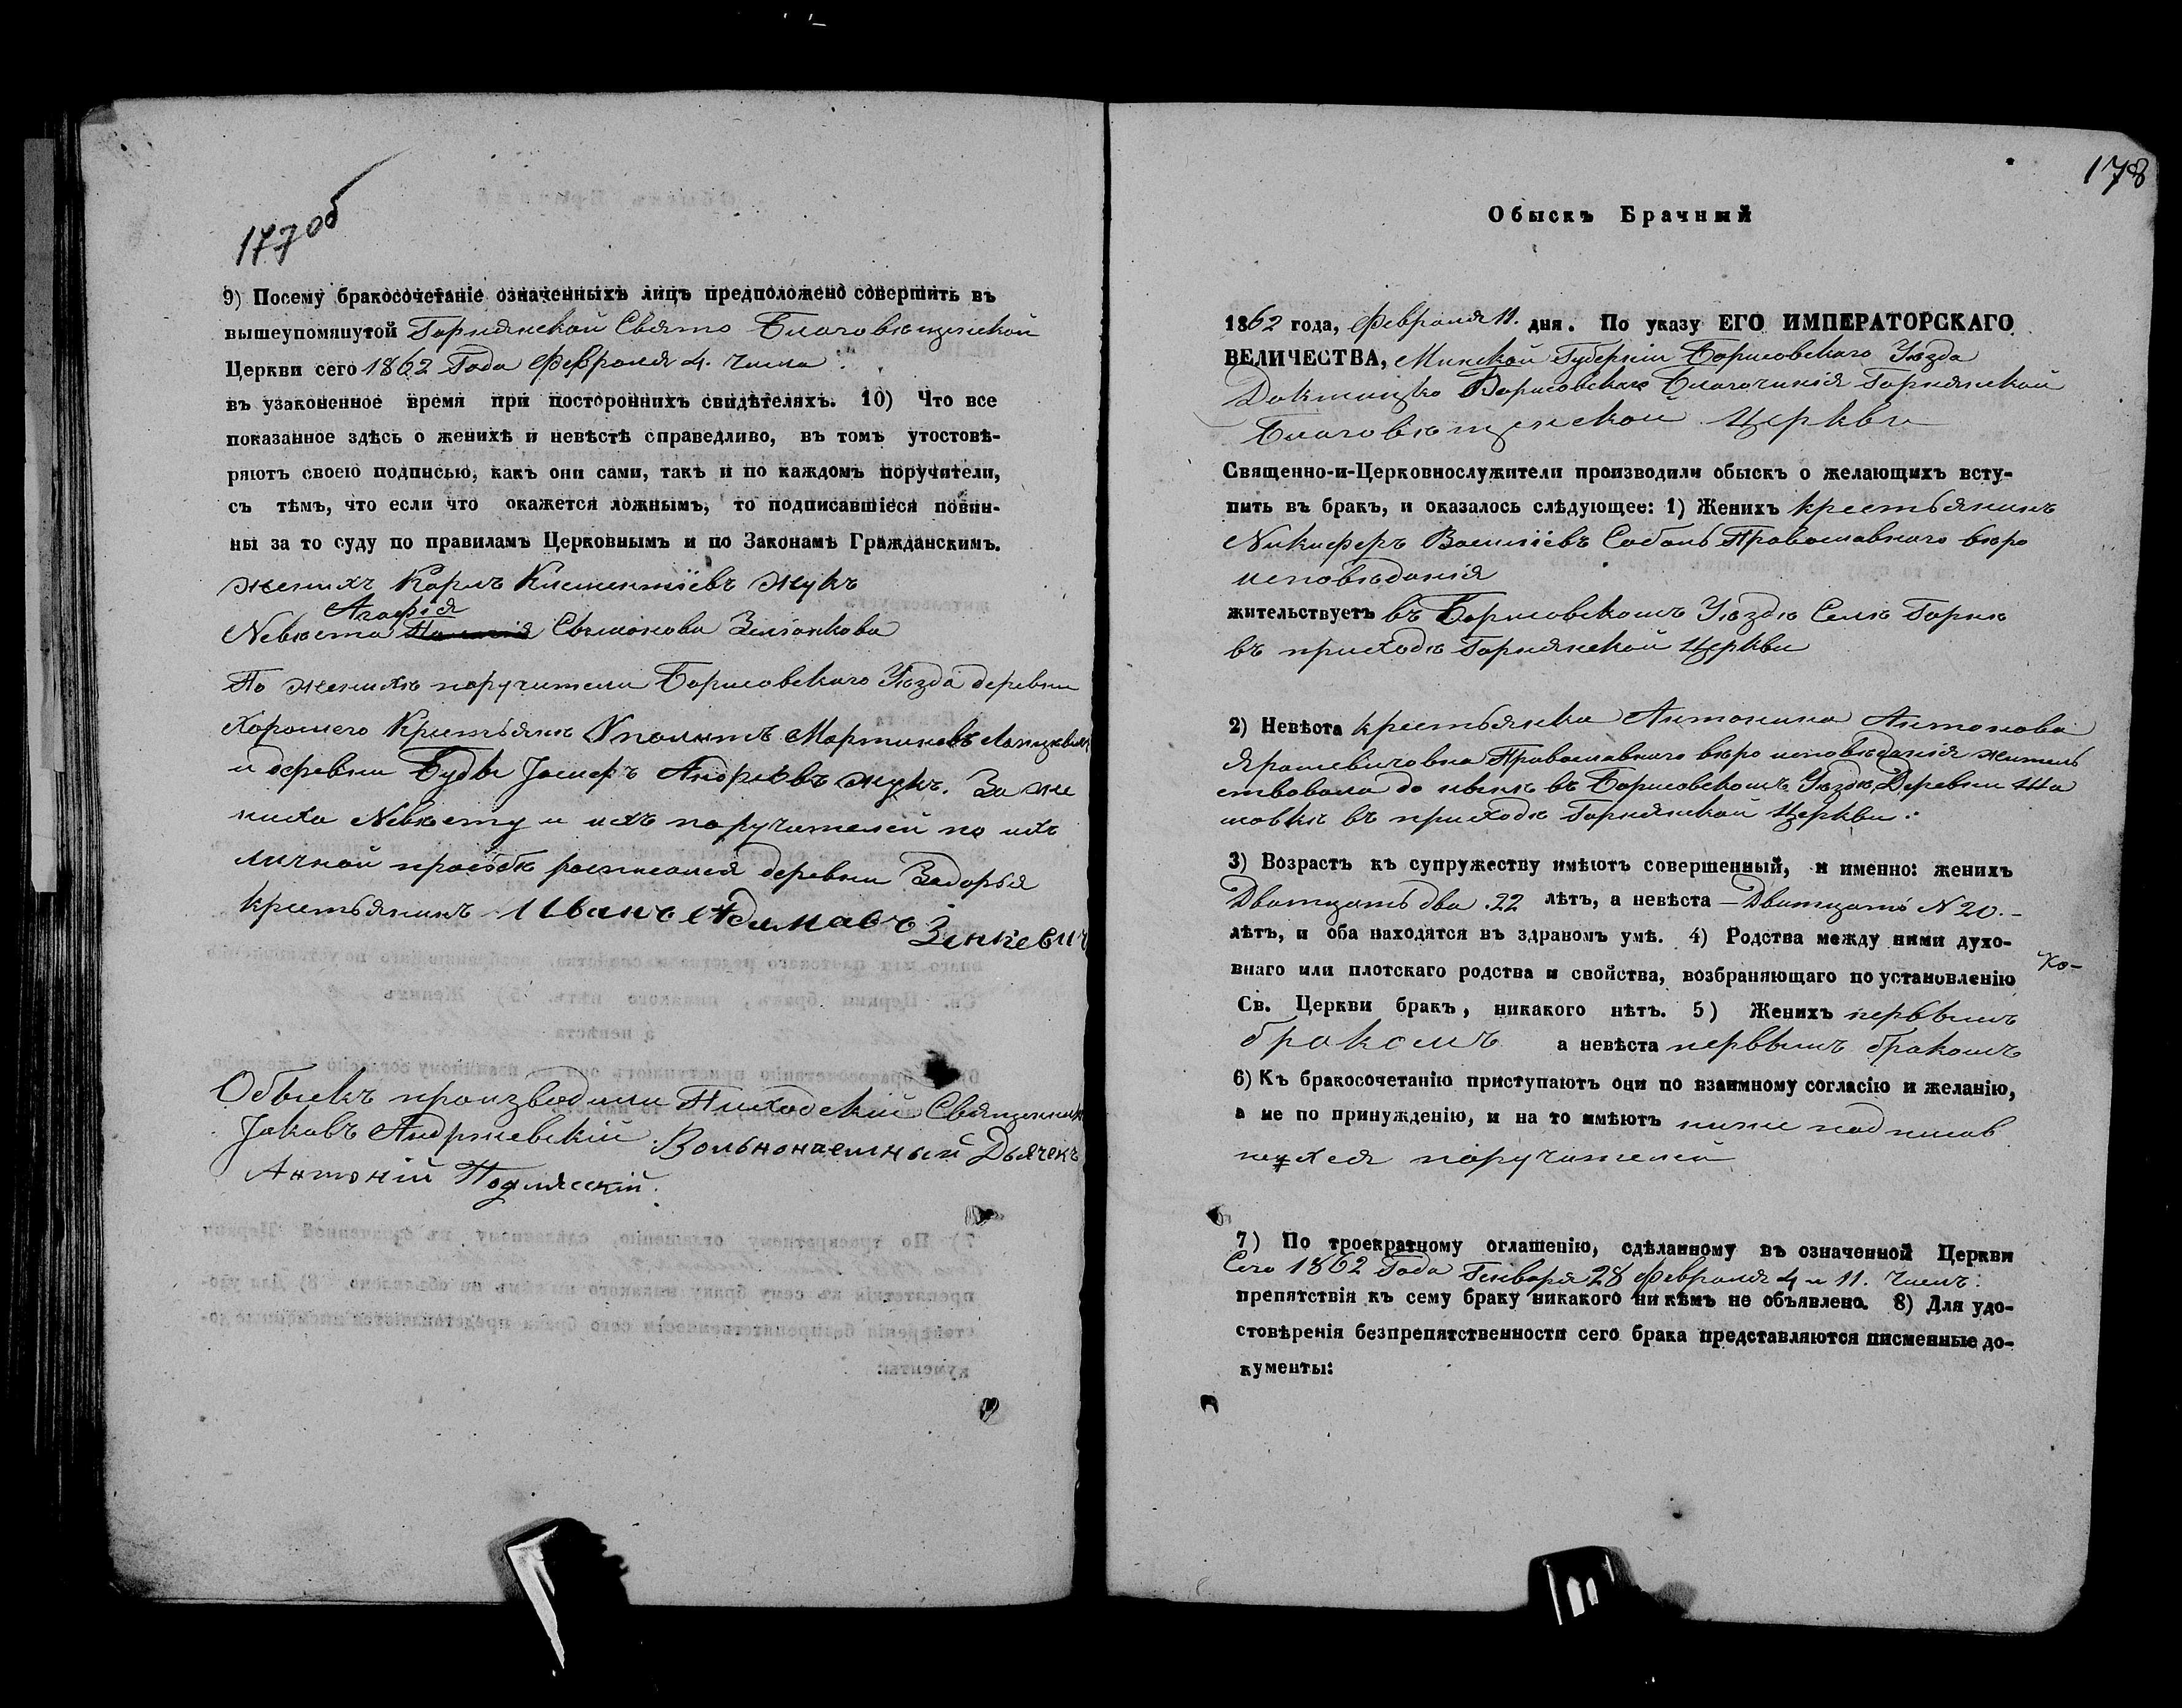 177 об
9) Посему бракосочетаніе означенныхъ лицъ предположено совершить въ
вышеупомянутой Горнянской Свято Благовѣщенской
Церкви сего 1862 Года Февраля 4. числа
въ узаконенное время при постороннихъ свидѣтеляхъ. 10) Что все
показанное здѣсь о женихѣ и невѣстѣ справедливо, въ томъ утостовѣ-
ряютъ своею подписью, какъ они сами, такъ и по каждомъ поручители,
съ тѣмъ, что если что окажется ложнымъ, то подписавшіеся повин-
ны за то суду по правиламъ Церковнымъ и по Законамъ Гражданскимъ.
женихъ Карлъ Климентіевъ жукъ
Агафія
Nевѣста Сѣмонова
По женихѣ поручители Борисовскаго Уѣзда деревни
Хорошего Мартиновъ
и деревни Буды Jосифъ Андреевъ жукъ. За же
ниха Nевѣсту и ихъ поручителей по ихъ
личной прозбѣ росписался деревни Задорья
крестьянинъ Иванъ Адамавъ Зенкевич
Обыскъ производили Приходскій Священникъ
Jаковъ Андржиевскій. Вольнонаемный Дьячекъ
Антоній
178
Обыскъ Брачный
1862 года, Февраля 11. дня. По указу ЕГО ИМПЕРАТОРСКАГО
ВЕЛИЧЕСТВА, Минской Губерніи Борисовскаго Уѣзда
Докшицко Борисовскаго Благочинія Горнянской
Благовѣщенской Церкви
Священно-и-Церковнослужители производили обыскъ о желающихъ всту-
пить въ бракъ, и оказалось слѣдующее: 1) Женихъ крестьянинъ
Nикиферъ Василіевъ Соболь Православнаго вѣро
исповѣданія
жительствуетъ въ Борисовскомъ Уѣздѣ Селѣ Горнѣ
въ приходѣ Горнянской Церкви
2) Невѣста крестьянка Антонина Антонова
Ярошевичовна Православнаго вѣро исповѣданія житель
ствовала до нынѣ въ Борисовскомъ Уѣздѣ, Деревни Ша
мовкѣ въ приходѣ Горнянской Церкви.
3) Возрастъ къ супружеству имѣютъ совершенный, и именно: женихъ
Дватцать два 22 лѣтъ, а невѣста – Дватцать N 20. –
лѣтъ, и оба находятся въ здравомъ умѣ. 4) Родства между ними духо-
внаго или плотскаго родства и свойства, возбраняющаго по установленію
Св. Церкви бракъ, никакого нѣтъ. 5) Женихъ первымъ
бракомъ а невѣста первымъ бракомъ
6) Къ бракосочетанію приступаютъ они по взаимному согласію и желанію,
а не по принужденію, и на то имѣютъ ниже подписав
шихся поручителей
7) По троекратному оглашенію, сдѣланному въ означенной Церкви
Сего 1862 Года Генваря 28 Февраля 4 и 11. Числъ
препятствія къ сему браку никакого ни кѣмъ не объявлено. 8) Для удо-
стовѣренія безпрепятственности сего брака представляются писменные до-
кументы: